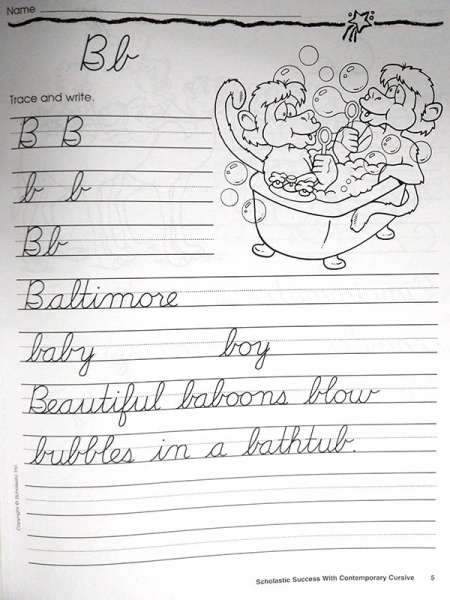 Name
Bb
Trace and write.
B B
b b
Bb
Baltimore
baby boy
Beautiful baboons blow
bubbles in a bathtub.
Copyright © Scholastic Inc.
Scholastic Success With Contemporary Cursive 5